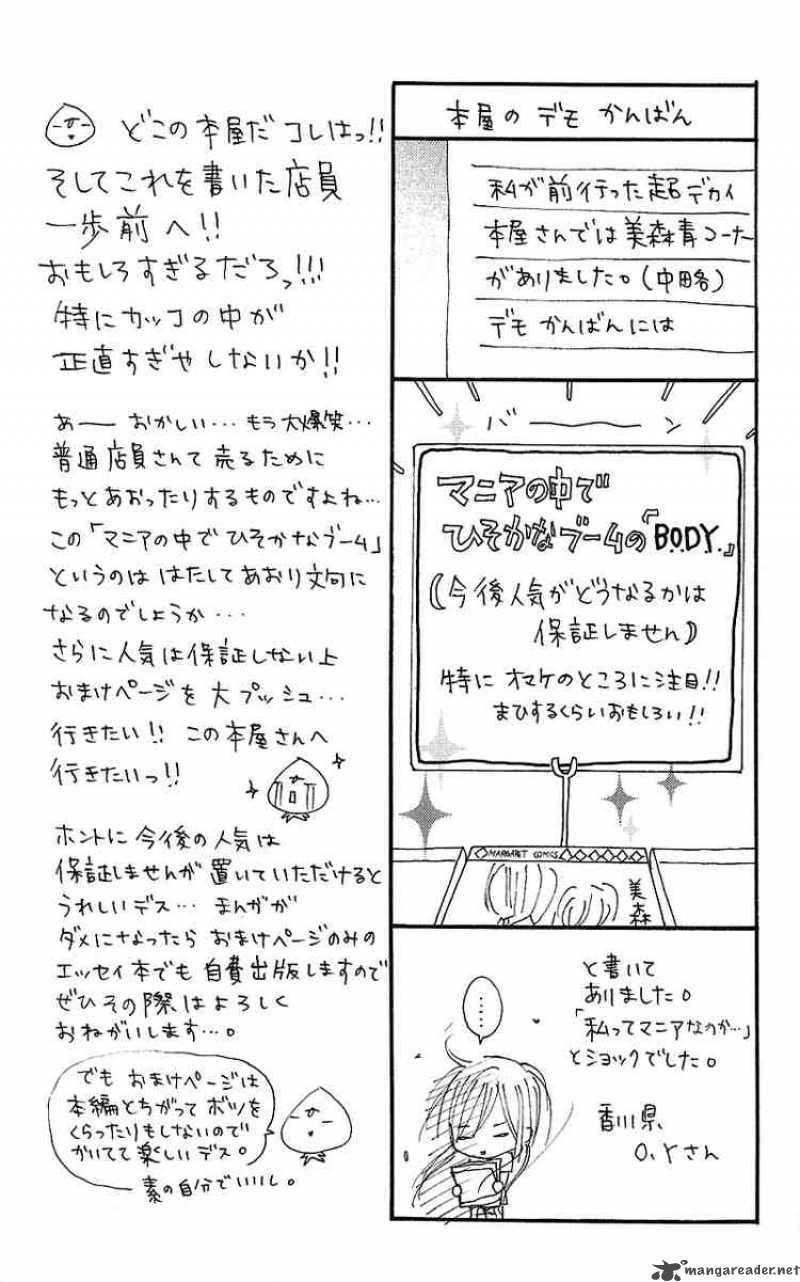 本屋の デモ かんばん
私が前行った超デカイ
本屋さんでは美森青コーナー
がありました。(中略)
デモ かんばんには
バーーン
マニアの中で
ひそかなブームの『B.O.D.Y.』
((今後人気がどうなるかは
保証しません))
特に オマケのところに注目!!
まひするくらいおもしろい!!
MARGARET COMICS
美森
……
と書いて
ありました。
「私ってマニアなのか…」
とショックでした。
香川県
O.Yさん
どこの本屋だ コレはっ!!
そしてこれを書いた店員
一歩前へ!!
おもしろすぎるだろっ!!!
特にカッコの中が
正直すぎやしないか!!
あーー おかしい… もう大爆笑…
普通店員さんて 売るために
もっとあおったりするものですよね…
この「マニアの中で ひそかなブーム」
というのは はたしてあおり文句に
なるのでしょうか…
さらに人気は保証しない上
おまけページを 大プッシュ…
行きたい!! この本屋さんへ
行きたいっ!!
ホントに今後の人気は
保証しませんが 置いていただけると
うれしいデス… まんがが
ダメになったら おまけページのみの
エッセイ本でも 自費出版しますので
ぜひその際はよろしく
おねがいします…。
でも おまけページは
本編とちがって ボツを
くらったりもしないので
かいてて楽しいデス。
素の自分でいいし。
mangareader.net